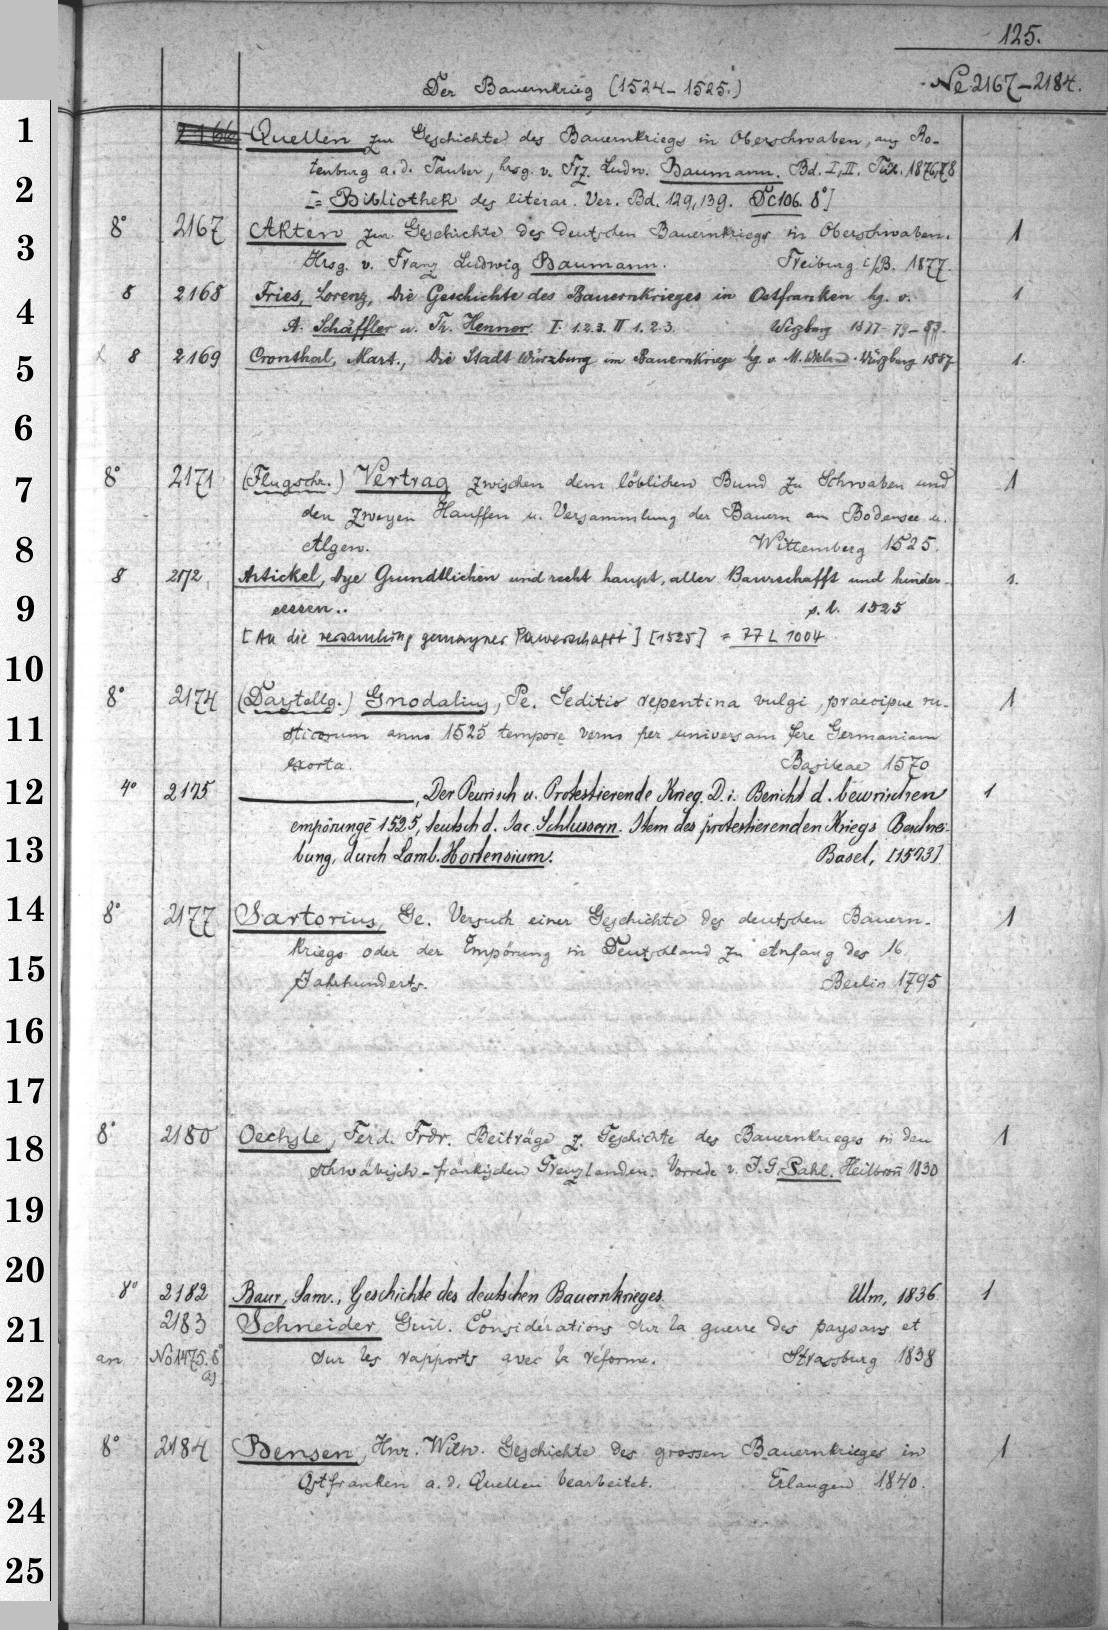 125.
Der Bauernkrieg (1524-1525.)
Ne 2167-2184.
1
2166 Quellen zur Geschichte des Bauernkriegs in Oberschwaben, aus Ro-
tenburg a. d. Tauber, hrsg. v. Frz. Ludw. Baumann. Bd. I, II. Tüb. 1876,78
2
[= Bibliothek des literar. Ver. Bd. 129, 139. Dc 106. 8°]
8° 2167 Akten zur Geschichte des deutschen Bauernkriegs in Oberschwaben. 1
3
Hrsg. v. Franz Ludwig Baumann. Freiburg i/B. 1877.
8 2168 Fries, Lorenz, Die Geschichte des Bauernkrieges in Ostfranken hg. v. 1
4
A. Schäffler u. Th. Henner I. 1.2.3. II 1.2.3. Würzburg 1877-79-83.
8 2169 Cronthal, Mart., Die Stadt Würzburg im Bauernkriege hg. v. M. Wieland. Würzburg 1887 1.
5
6
8° 2171 (Flugschr.) Vertrag zwischen dem löblichen Bund zu Schwaben und 1
7
den zweyen Hauffen u. Versammlung der Bauern am Bodensee u.
8
Algew. Wittemberg 1525.
8 2172 Artickel, dye Grundtlichen und recht haupt, aller Baurschafft und hinder- 1.
9
sessen.. s. l. 1525
[An die versamlung gemayner Pawerschafft] [1525] = 77 L 1004
10
8° 2174 (Darstellg.) Gnodalius, Pe. Seditio repentina vulgi, praecipue ru- 1
11
sticorum anno 1525 tempore verno per universam fere Germaniam
exorta. Basileae 1570
12
4° 2175 ————, Der Peurisch u. Protestierende Krieg. D. i. Bericht d. bewrischen 1
empörungē 1525, teutsch d. Jac. Schlussern. Item des protestierenden Kriegs Beschrei-
13
bung, durch Lamb. Hortensium. Basel, [1573]
14
8° 2177 Sartorius, Ge. Versuch einer Geschichte des deutschen Bauern- 1
kriegs oder der Empörung in Deutschland zu Anfang des 16
15
Jahrhunderts. Berlin 1795
16
17
8° 2180 Oechsle, Ferd. Frdr. Beiträge z. Geschichte des Bauernkrieges in den 1
18
schwäbisch-fränkischen Grenzlanden. Vorrede v. J. G. Pahl. Heilbronn 1830
19
20
8° 2182 Baur, Sam., Geschichte des deutschen Bauernkrieges. Ulm, 1836 1
21
2183 Schneider Guil. Considérations sur la guerre des paysans et
an No 1475. 8° sur les rapports avec la réforme. Strassburg 1838
22
23
8° 2184 Bensen, Hnr. Wilh. Geschichte des grossen Bauernkrieges in 1
Ostfranken a. d. Quellen bearbeitet. Erlangen 1840.
24
25